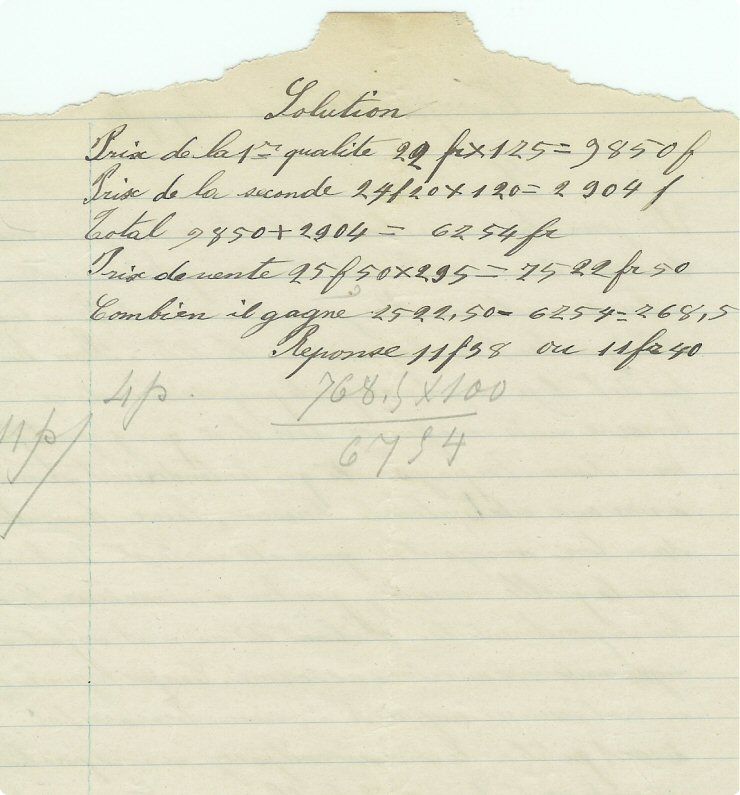 Solution
Prix de la 1re qualite 22 fr x 175 = 3850 f
Prix de la seconde 24f20 x 120 = 2904 f
Total 3850 + 2904 = 6754 fr
Prix de vente 25f50 x 295 = 7522 fr 50
Combien il gagne 7522,50 - 6754 = 768,5
Reponse 11f38 ou 11fr40
4p. 768,5 x 100
11p/ 6754